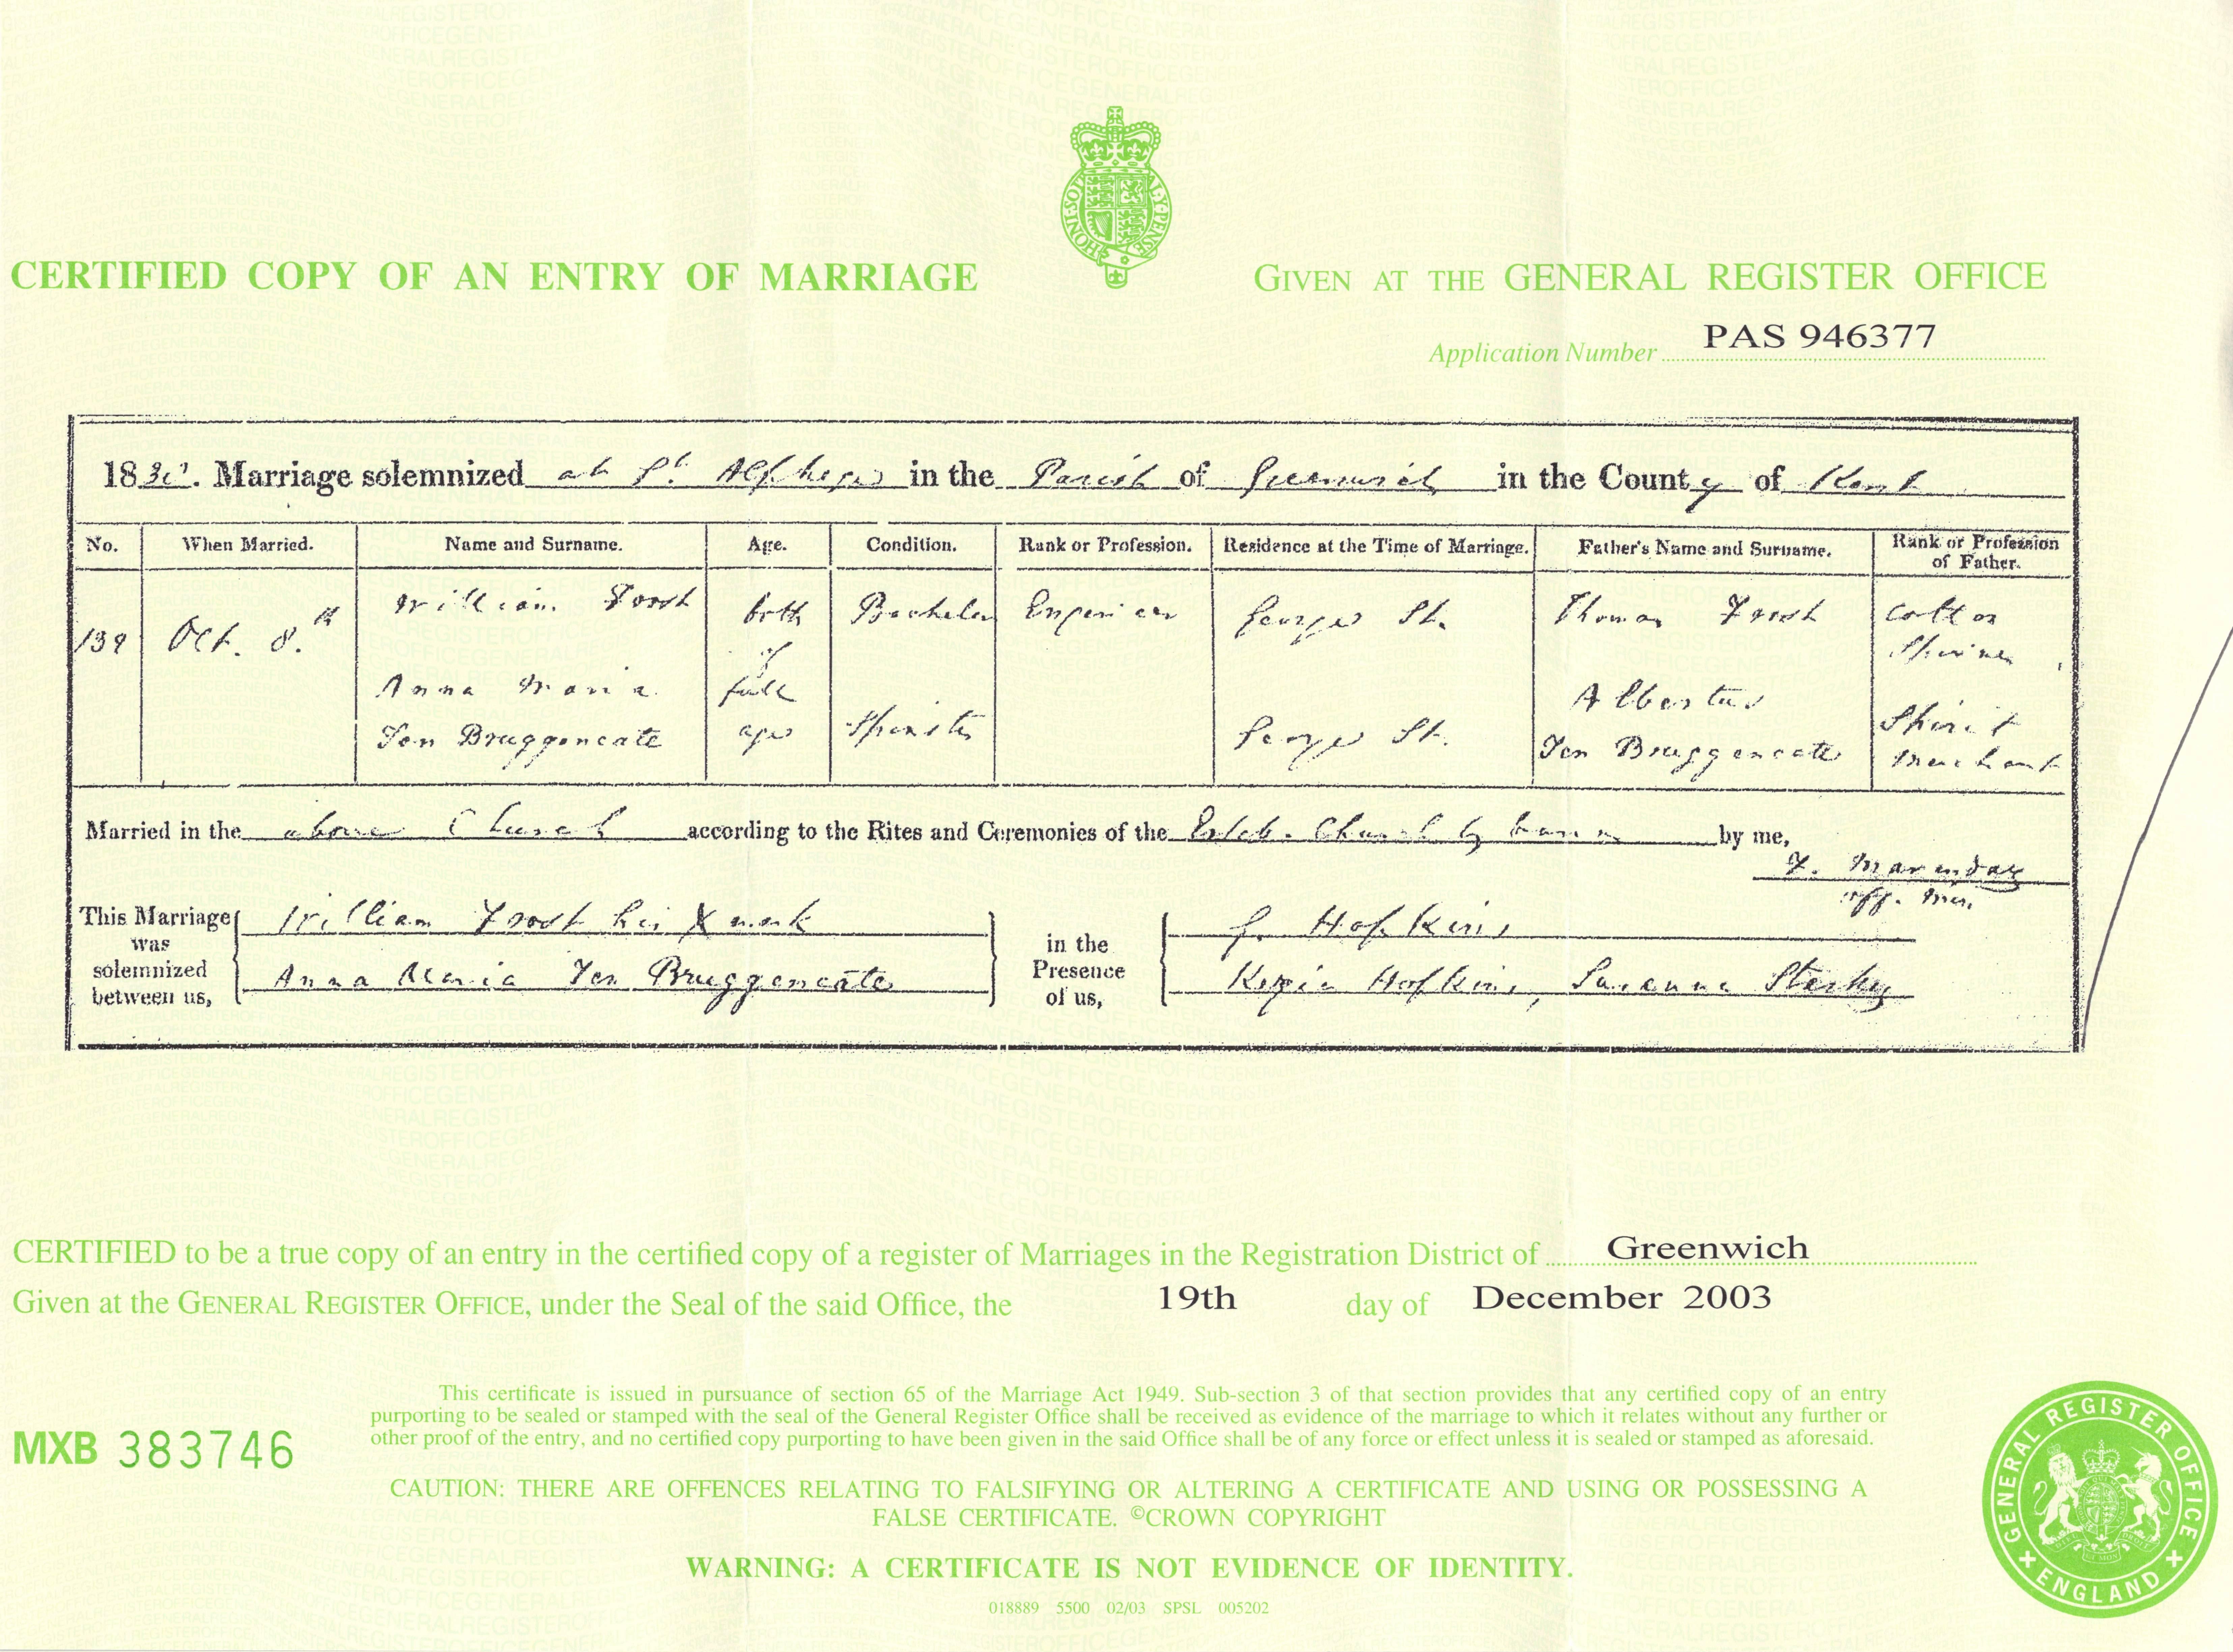 CERTIFIED COPY OF AN ENTRY OF MARRIAGE
GIVEN AT THE GENERAL REGISTER OFFICE
Application Number PAS 946377
Marriage solemnized at St. Alpheges in the Parish of Greenwich in the County of Kent
No. When Married. Name and Surname. Age. Condition. Rank or Profession. Residence at the Time of Marriage. Father's Name and Surname. Rank or Profession of Father.
139 Oct. 8.th William Frost both Bachelor Engineer George St. Thomas Frost Cotton
of Spinner
Anna Maria full Albertus
Ten Bruggencate age Spinster George St. Ten Bruggencate Spirit
Merchant
Married in the above Church according to the Rites and Ceremonies of the Estab. Church by banns by me,
off. Min.
This Marriage was solemnized between us, William Frost his X mark in the Presence of us, Hopkins
Anna Maria Ten Bruggencate Hopkins, Susanna
CERTIFIED to be a true copy of an entry in the certified copy of a register of Marriages in the Registration District of Greenwich
Given at the GENERAL REGISTER OFFICE, under the Seal of the said Office, the 19th day of December 2003
This certificate is issued in pursuance of section 65 of the Marriage Act 1949. Sub-section 3 of that section provides that any certified copy of an entry
purporting to be sealed or stamped with the seal of the General Register Office shall be received as evidence of the marriage to which it relates without any further or
other proof of the entry, and no certified copy purporting to have been given in the said Office shall be of any force or effect unless it is sealed or stamped as aforesaid.
MXB 383746
CAUTION: THERE ARE OFFENCES RELATING TO FALSIFYING OR ALTERING A CERTIFICATE AND USING OR POSSESSING A
FALSE CERTIFICATE. ©CROWN COPYRIGHT
WARNING: A CERTIFICATE IS NOT EVIDENCE OF IDENTITY.
018889 5500 02/03 SPSL 005202
GENERAL REGISTER OFFICE
ENGLAND